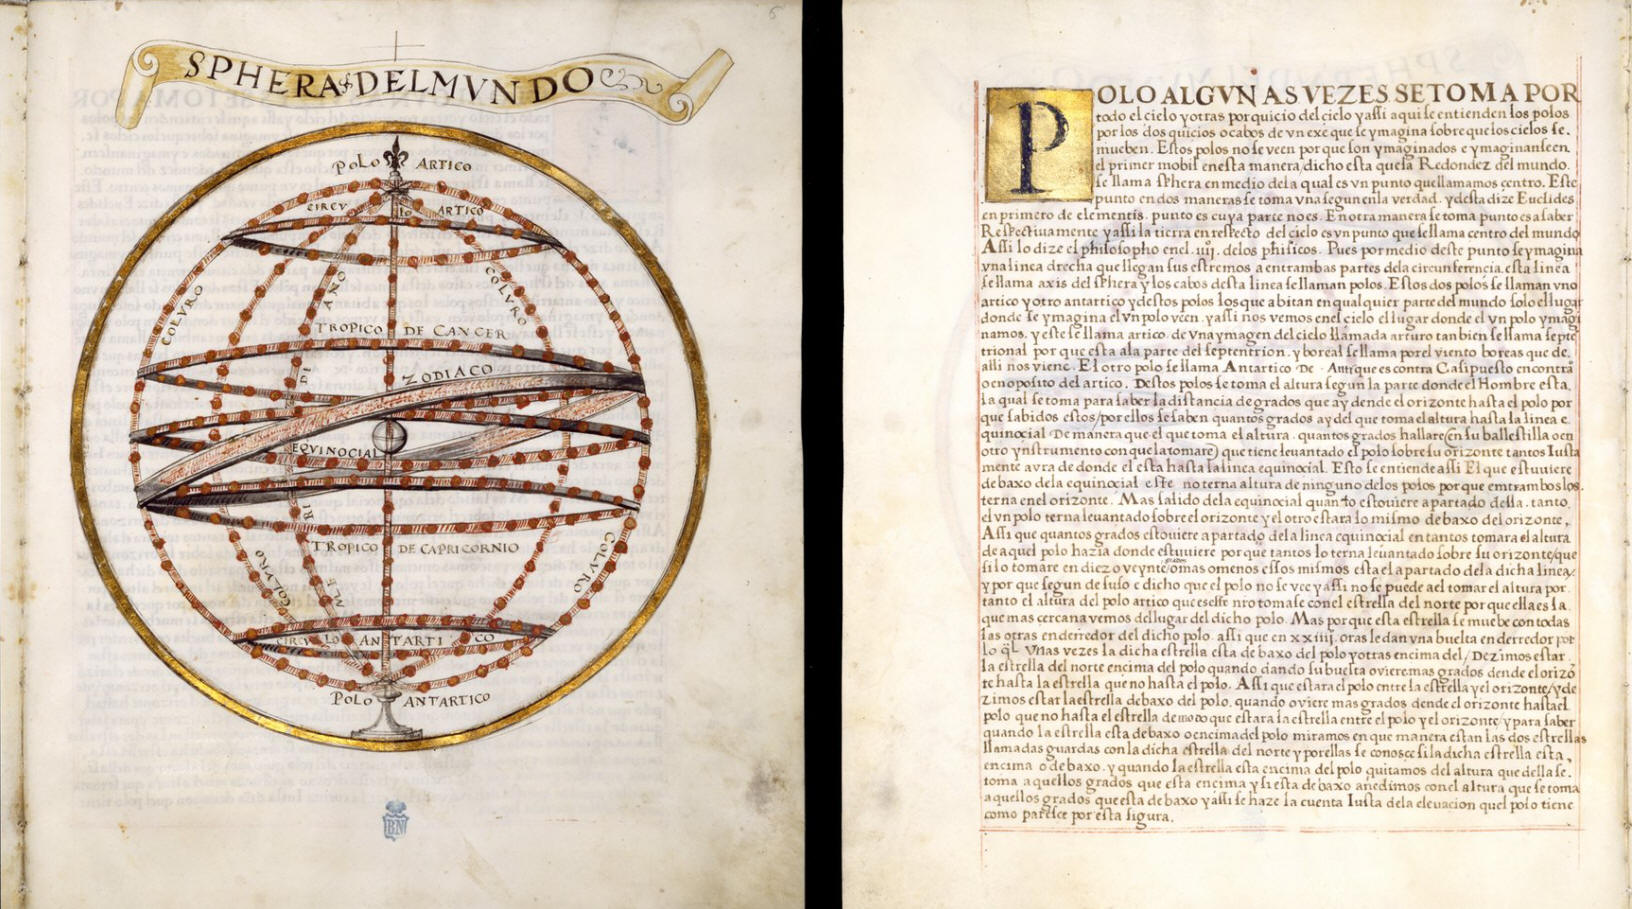 6
SPHERA DEL MVNDO
POLO ARTICO
CIRCVLO ARTICO
COLVRO
COLVRO
DI ANO
TROPICO DE CANCER
ZODIACO
EQVINOCIAL
TROPICO DE CAPRICORNIO
COLVRO
COLVRO
CIRCVLO ANTARTICO
POLO ANTARTICO
BN
POLO ALGVNAS VEZES SE TOMA POR
todo el cielo y otras por quicio del cielo y assi aqui se entienden los polos
por los dos quicios o cabos de vn exe que se ymagina sobre que los cielos se.
mueben. Estos polos no se veen por que son ymaginados e ymaginanse en
el primer mobil en esta manera / dicho esta que la Redondez del mundo.
se llama sphera en medio de la qual es vn punto que llamamos centro. Este
punto en dos maneras se toma vna segun en la verdad. y desta dize Euclides
en primero de elementis. punto es cuya parte no es. En otra manera se toma punto es a saber
Respectiva mente y assi la tierra en respecto del cielo es vn punto que se llama centro del mundo
Assi lo dize el philosopho en el .iiij. de los phisicos. Pues por medio deste punto se ymagina
vna linea drecha que llegan sus estremos a entrambas partes de la circunferencia. esta linea
se llama axis del sphera y los cabos desta linea se llaman polos. Estos dos polos se llaman vno
artico y otro antartico y destos polos los que abitan en qualquier parte del mundo solo el lugar
donde se ymagina el vn polo veen. yassi nos vemos en el cielo el lugar donde el vn polo ymagi
namos. y este se llama artico. de vna ymagen del cielo llamada arturo tan bien se llama septe
trional por que esta ala parte del septentrion. y boreal se llama por el viento boreas que de.
alli nos viene. El otro polo se llama Antartico De . Anti que es contra Casi puesto en contrā
o en oposito del artico. Destos polos se toma el altura segun la parte donde el Hombre esta.
la qual se toma para saber la distancia de grados que ay dende el orizonte hasta el polo por
que sabidos estos / por ellos se saben quantos grados ay del que toma el altura hasta la linea e.
quinocial De manera que el que toma el altura. quantos grados hallare (en su ballestilla o en
otro ynstrumento con que la tomare) que tiene levantado el polo sobre su orizonte tantos Iusta
mente avra de donde el esta hasta la linea equinocial. Esto se entiende assi El que estuviere
de baxo dela equinocial este no terna altura de ninguno delos polos por que emtrambos los.
terna en el orizonte. Mas salido dela equinocial quanto estoviere apartado della. tanto.
el vn polo terna levantado sobre el orizonte y el otro estara lo mismo de baxo del orizonte,
Assi que quantos grados estoviere apartado dela linea equinocial en tantos tomara el altura
de aquel polo hazia donde estuviere por que tantos lo terna levantado sobre su orizonte / que
si lo tomare en diez o veynte grados / o mas o menos essos mismos esta el apartado dela dicha linea.
y por que segun de suso e dicho que el polo no se vee y assi no se puede del tomar el altura por.
tanto el altura del polo artico que es el nro tomase con el estrella del norte por que ella es la.
que mas cercana vemos del lugar del dicho polo. Mas por que esta estrella se muebe con todas
las otras en derredor del dicho polo. assi que en xxiiij. oras le dan vna buelta en derredor por
lo q̄l vnas vezes la dicha estrella esta de baxo del polo y otras encima del / Dezimos estar.
la estrella del norte encima del polo quando dando su buelta oviere mas grados dende el orizō
te hasta la estrella que no hasta el polo. Assi que estara el polo entre la estrella y el orizonte / y de
zimos estar la estrella de baxo del polo. quando oviere mas grados dende el orizonte hasta el
polo que no hasta el estrella de modo que estara la estrella entre el polo y el orizonte / y para saber
quando la estrella esta de baxo o encima del polo miramos en que manera estan las dos estrellas
llamadas guardas con la dicha estrella del norte y por ellas se conosce si la dicha estrella esta,
encima o de baxo. y quando la estrella esta encima del polo quitamos del altura que della se.
toma aquellos grados que esta encima y si esta de baxo añedimos con el altura que se toma
a quellos grados que esta de baxo y assi se haze la cuenta Iusta dela elevacion quel polo tiene
como paresce por esta figura.